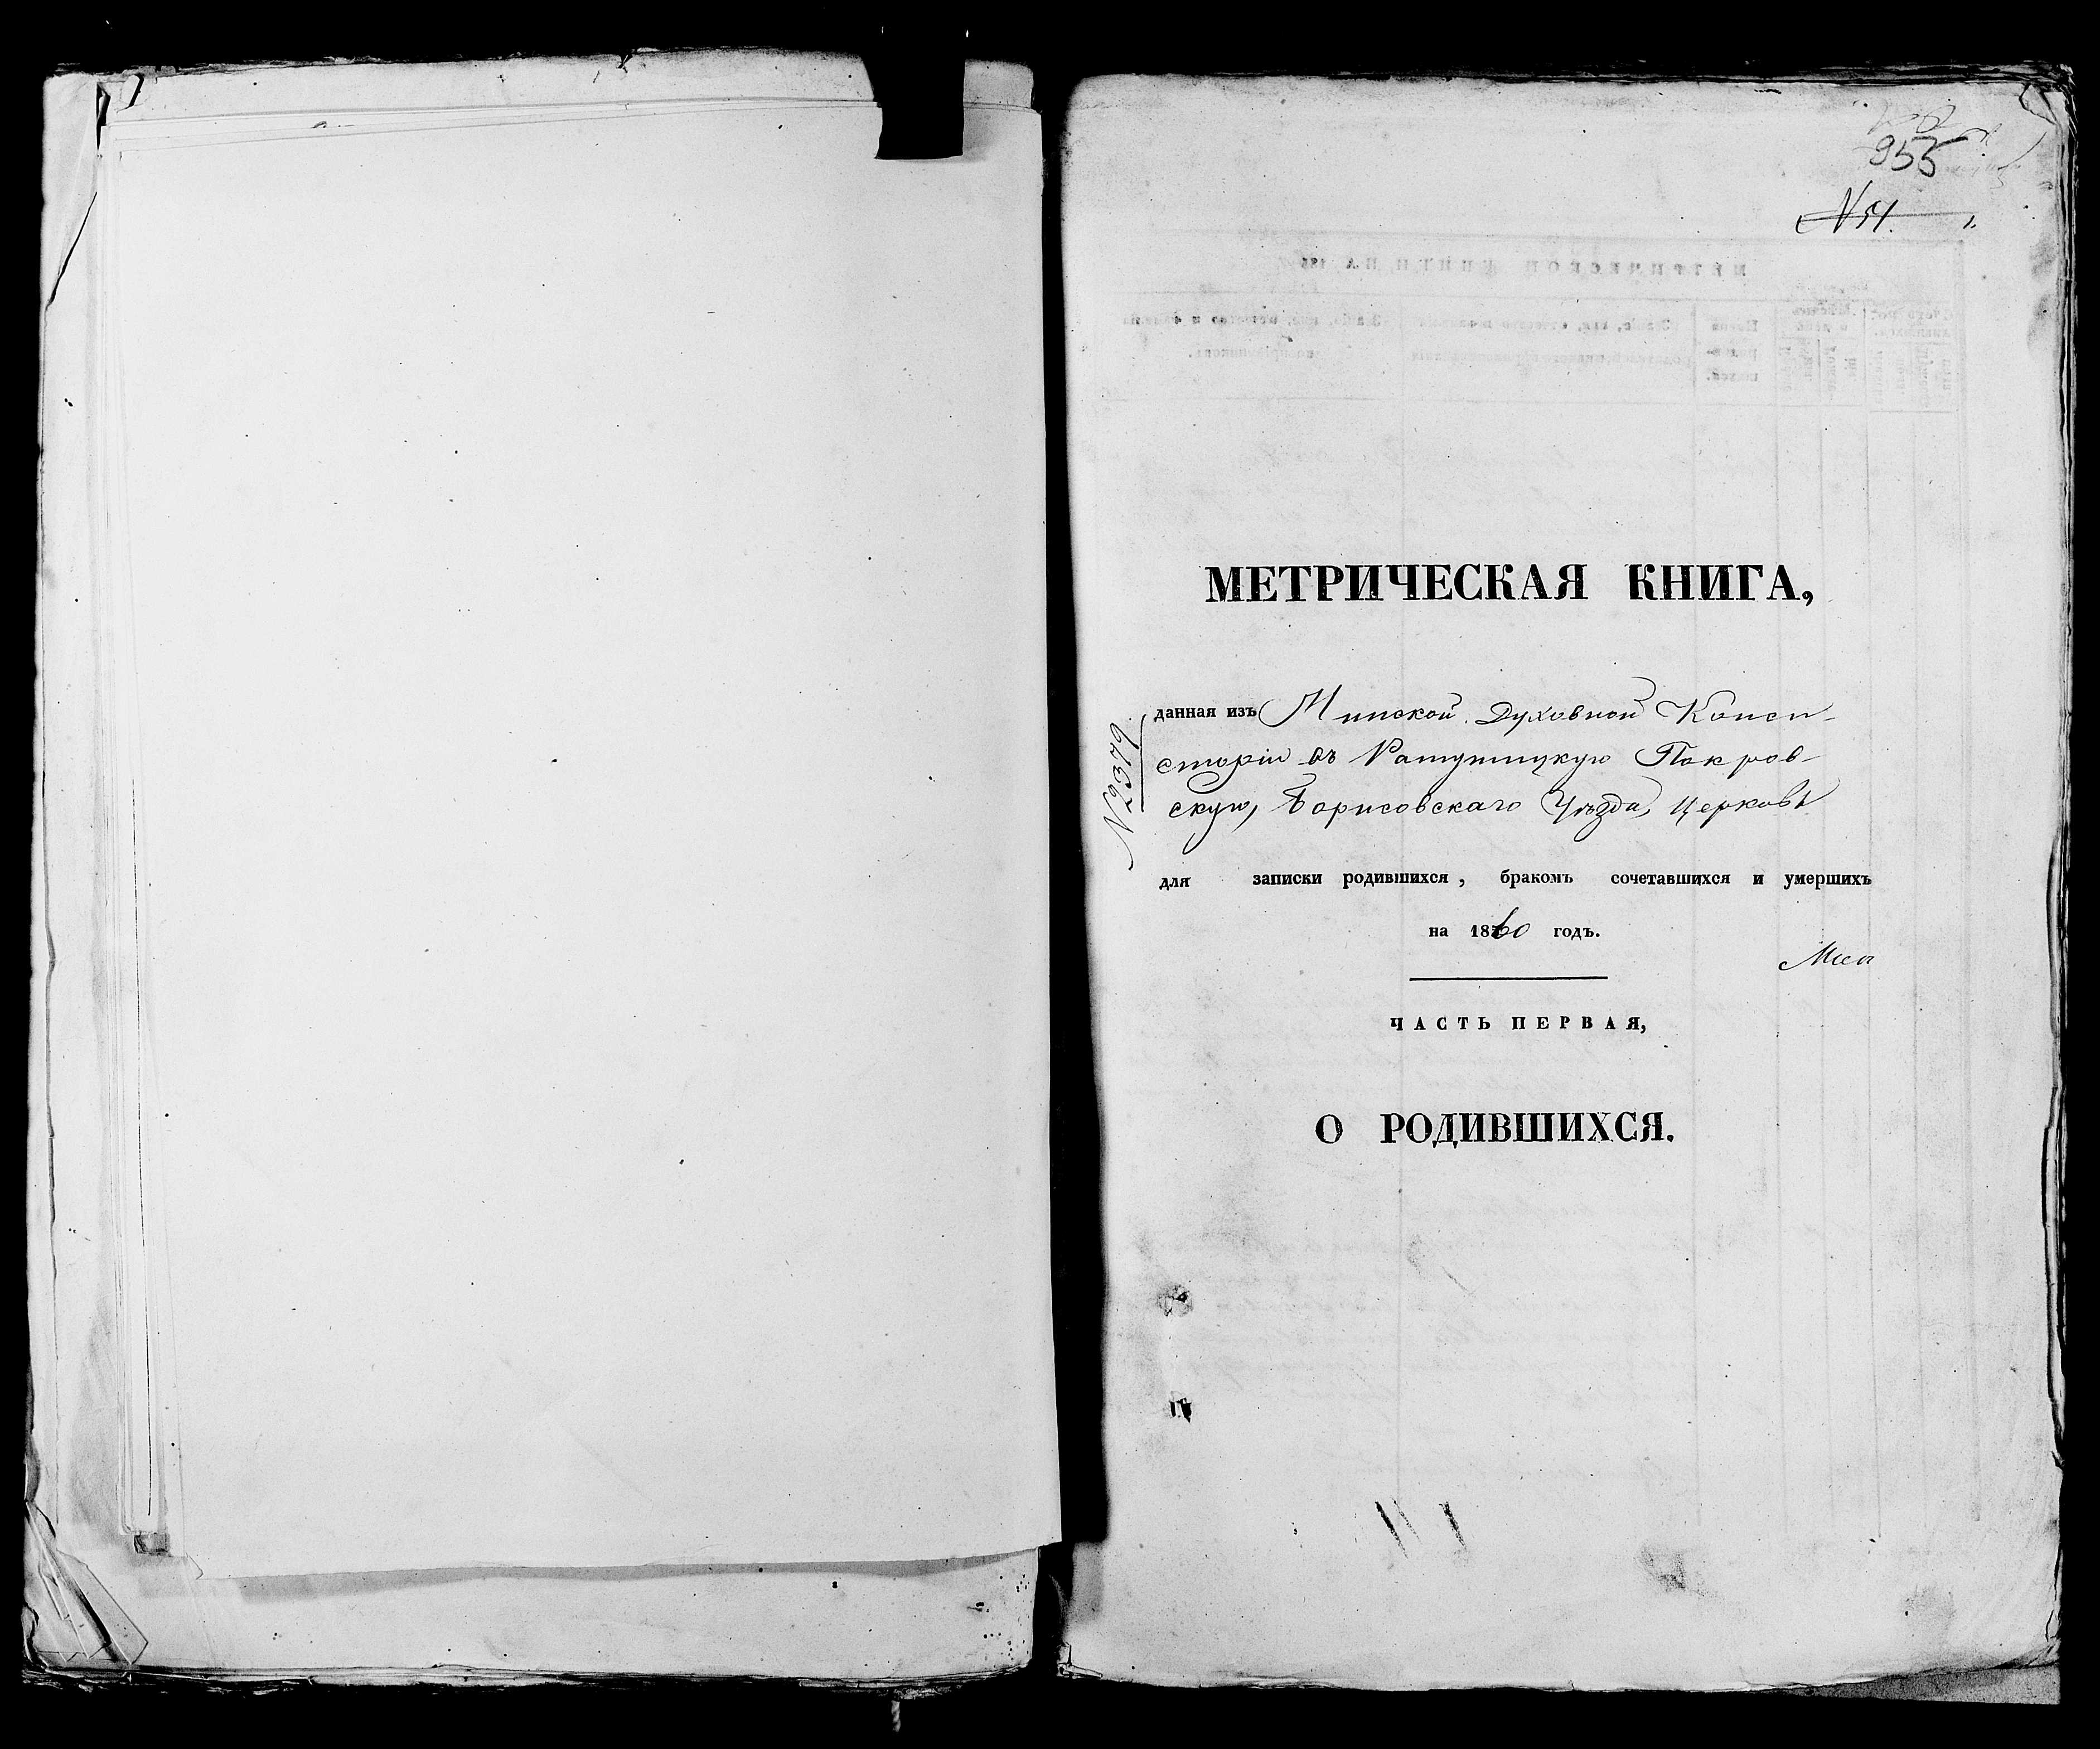 955
N 51.
МЕТРИЧЕСКАЯ КНИГА,
данная изъ Минской Духовной Конси-
сторіи въ Ратутицкую Покров-
скую, Борисовскаго Уѣзда, Церковь
N 2379
для записки родившихся, бракомъ сочетавшихся и умершихъ
на 1860 годъ.
ЧАСТЬ ПЕРВАЯ,
О РОДИВШИХСЯ.